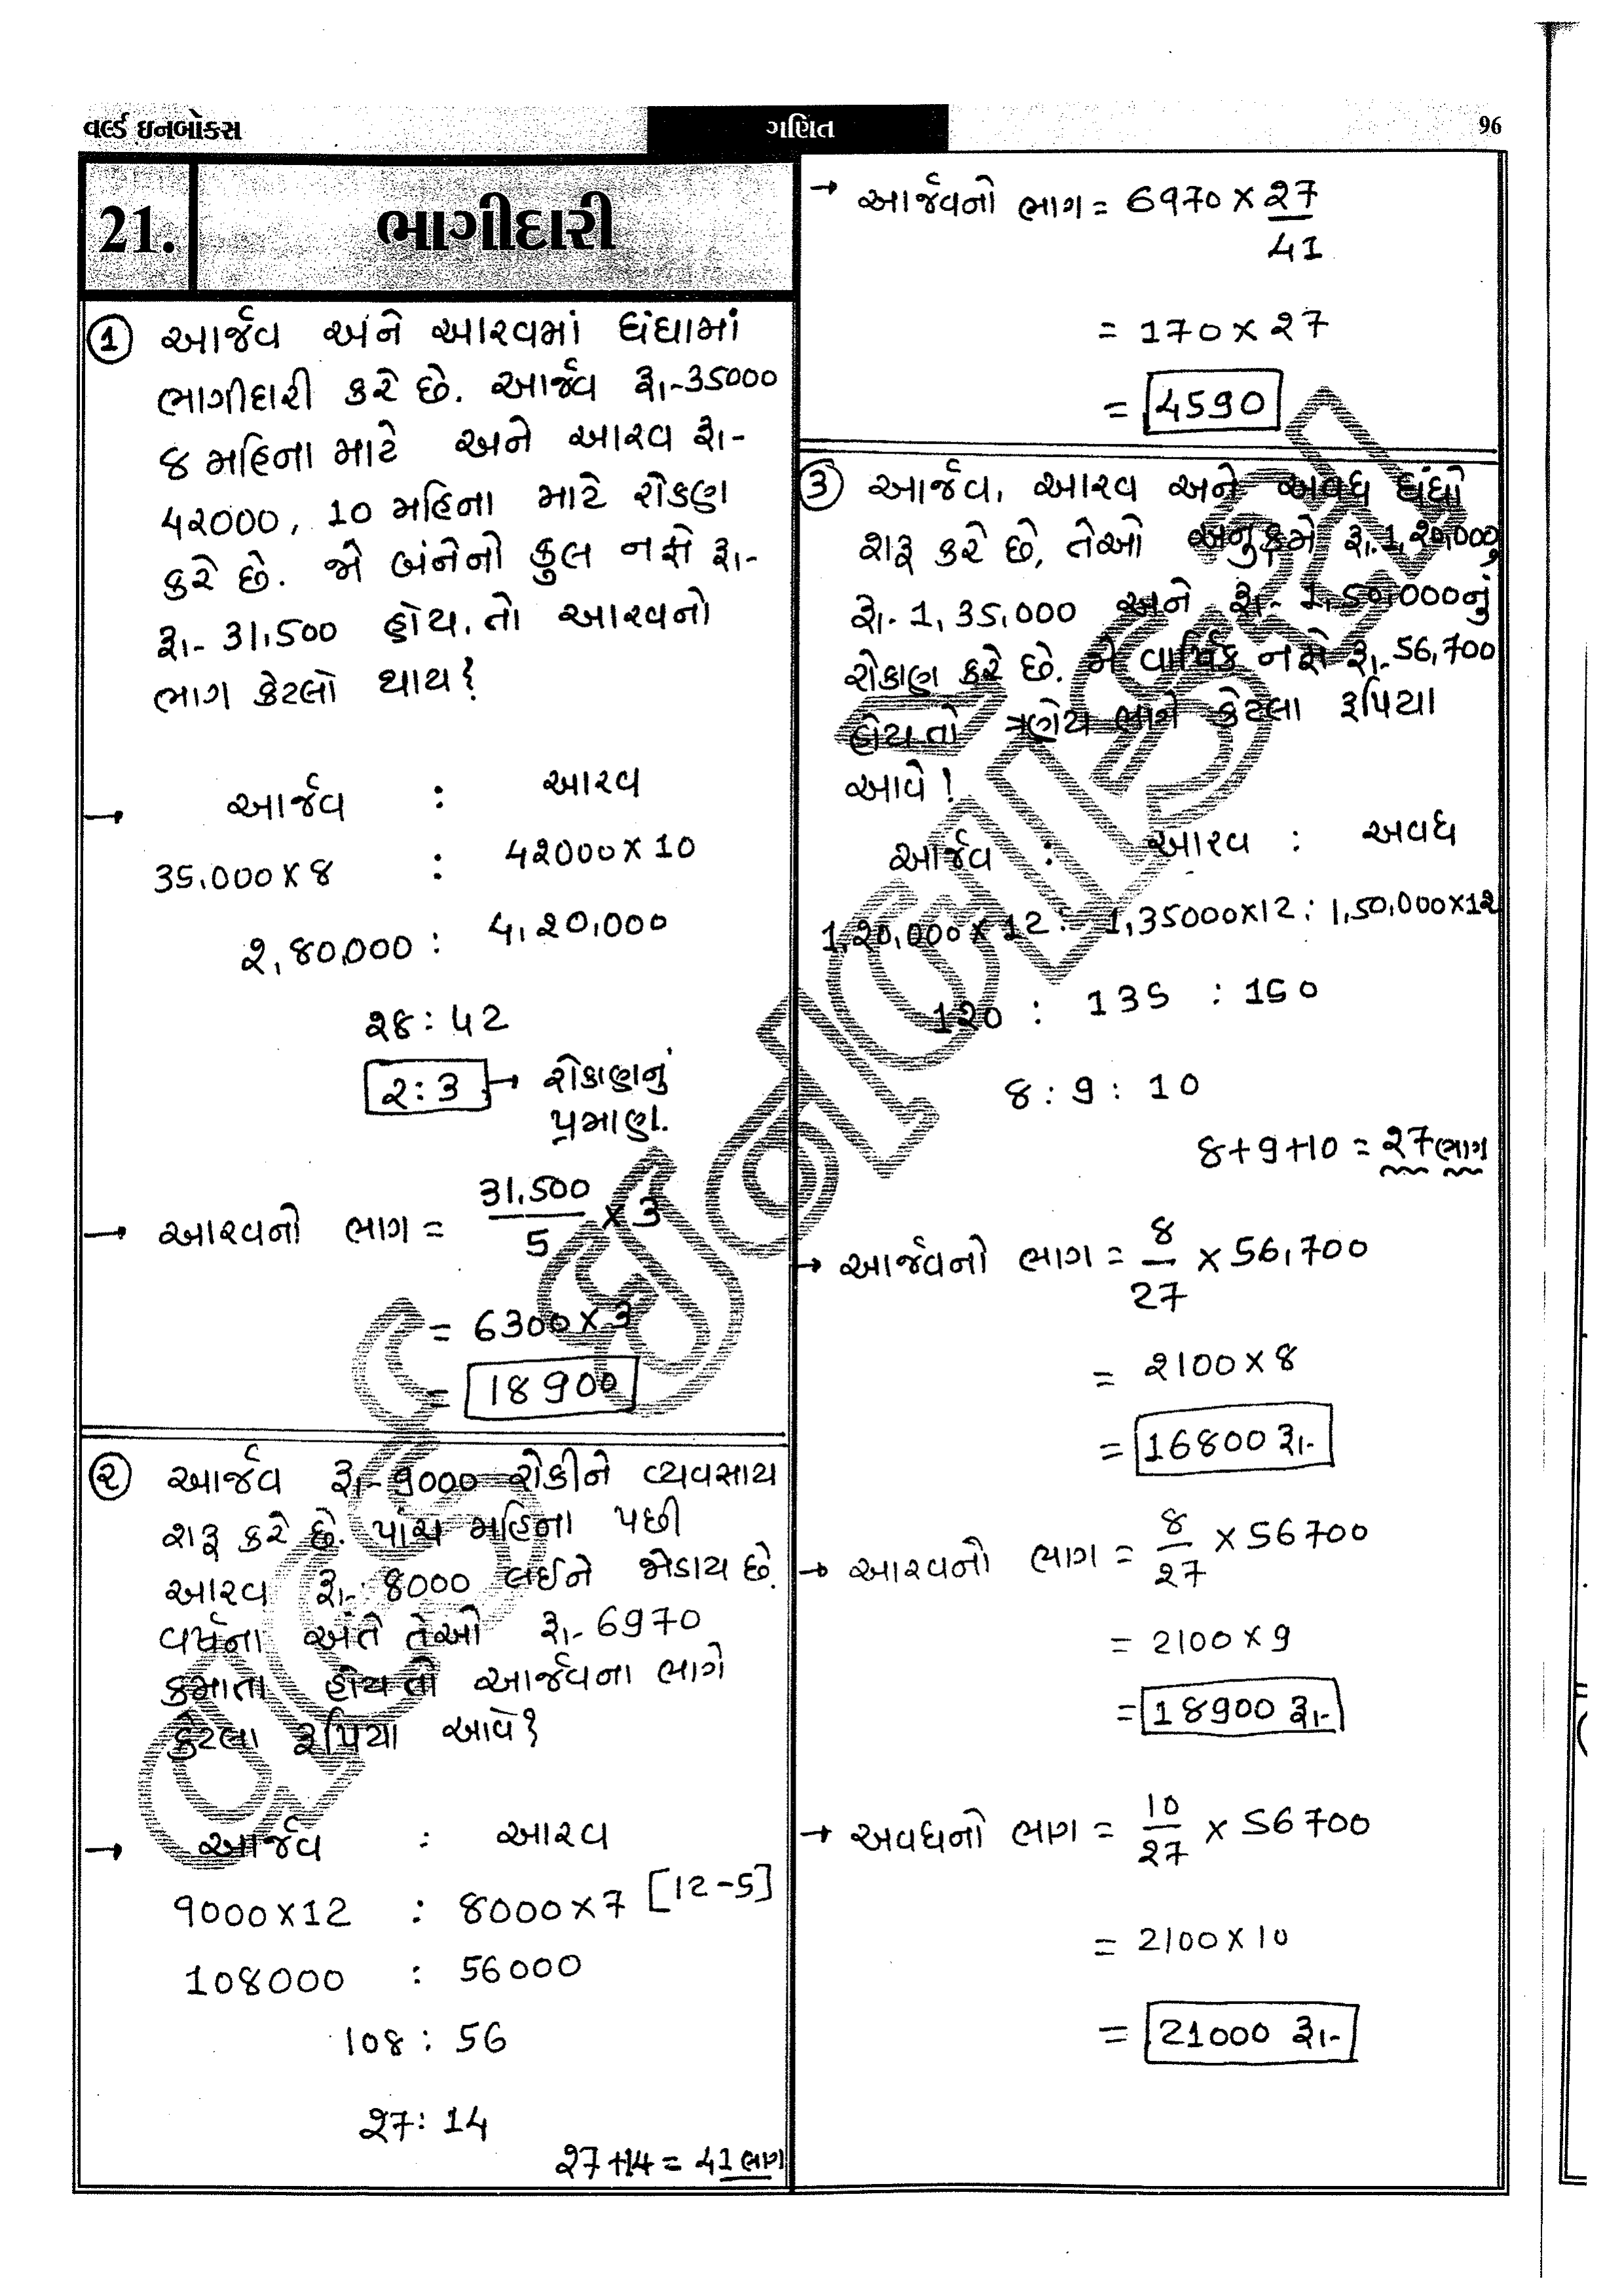 વર્લ્ડ ઇનબોક્સ
ગણિત
96
21.
ભાગીદારી
① આર્જવ અને આરવમાં ધંધામાં
ભાગીદારી કરે છે. આર્જવ રૂા-35000
8 મહિના માટે અને આરવ રૂા-
42000, 10 મહિના માટે રોકણ
કરે છે. જો બંનેનો કુલ નફો રૂા-
રૂા- 31,500 હોય, તો આરવનો
ભાગ કેટલો થાય?
→ આર્જવ : આરવ
35,000 X 8 : 42000 X 10
2,80,000 : 4,20,000
28 : 42
2 : 3 → રોકાણનું
પ્રમાણ.
→ આરવનો ભાગ = 31,500/5 X 3
= 6300 X 3
= 18900
② આર્જવ રૂા- 9000 રોકીને વ્યવસાય
શરૂ કરે છે. પાંચ મહિના પછી
આરવ રૂા- 8000 લઈને જોડાય છે.
વર્ષના અંતે તેઓ રૂા- 6970
કમાતા હોય તો આર્જવના ભાગે
કેટલા રૂપિયા આવે?
→ આર્જવ : આરવ
9000 X 12 : 8000 X 7 [12-5]
108000 : 56000
108 : 56
27 : 14
27+14 = 41 ભાગ
→ આર્જવનો ભાગ = 6970 X 27/41
= 170 X 27
= 4590
③ આર્જવ, આરવ અને અવધ ધંધો
શરૂ કરે છે, તેઓ અનુક્રમે રૂા. 1,20,000,
રૂા- 1,35,000 અને રૂા- 1,50,000નું
રોકાણ કરે છે. જો વાર્ષિક નફો રૂા.- 56,700
હોય તો ત્રણેય ભાગે કેટલા રૂપિયા
આવે!
આર્જવ : આરવ : અવધ
1,20,000 X 12 : 1,35000X12 : 1,50,000X12
120 : 135 : 150
8 : 9 : 10
8+9+10 = 27 ભાગ
→ આર્જવનો ભાગ = 8/27 X 56,700
= 2100 X 8
= 16800 રૂા-
→ આરવનો ભાગ = 8/27 X 56700
= 2100 X 9
= 18900 રૂા-
→ અવધનો ભાગ = 10/27 X 56700
= 2100 X 10
= 21000 રૂા-